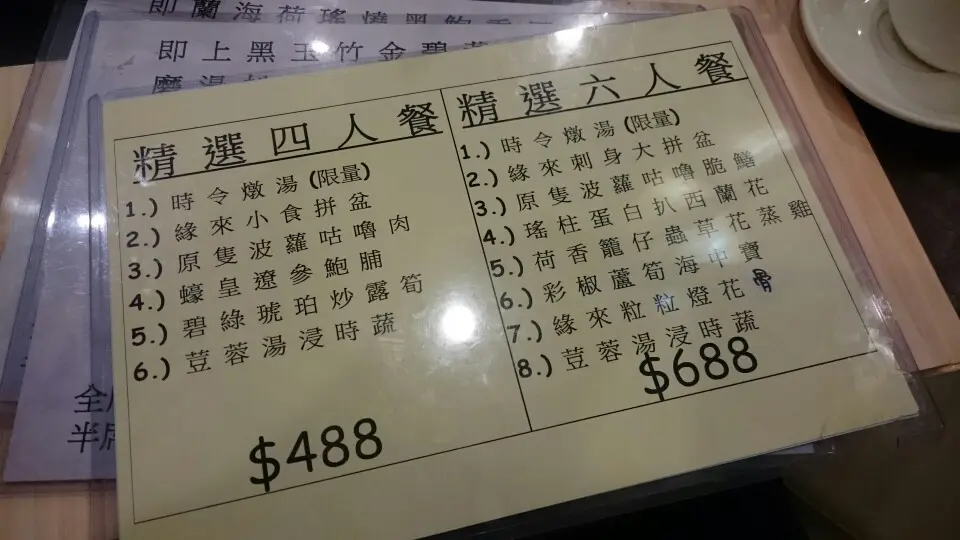 即蘭海荷瑤燒黑鮑
即上黑玉竹金碧
精選四人餐
1.) 時令燉湯(限量)
2.) 緣來小食拼盆
3.) 原隻波蘿咕嚕肉
4.) 蠔皇遼參鮑脯
5.) 碧綠琥珀炒露筍
6.) 荳蓉湯浸時蔬
$488
精選六人餐
1.) 時令燉湯(限量)
2.) 緣來刺身大拼盆
3.) 原隻波蘿咕嚕脆鱔
4.) 瑤柱蛋白扒西蘭花
5.) 荷香籠仔蟲草花蒸雞
6.) 彩椒蘆筍海中寶
7.) 緣來粒粒燈花骨
8.) 荳蓉湯浸時蔬
$688
全
半